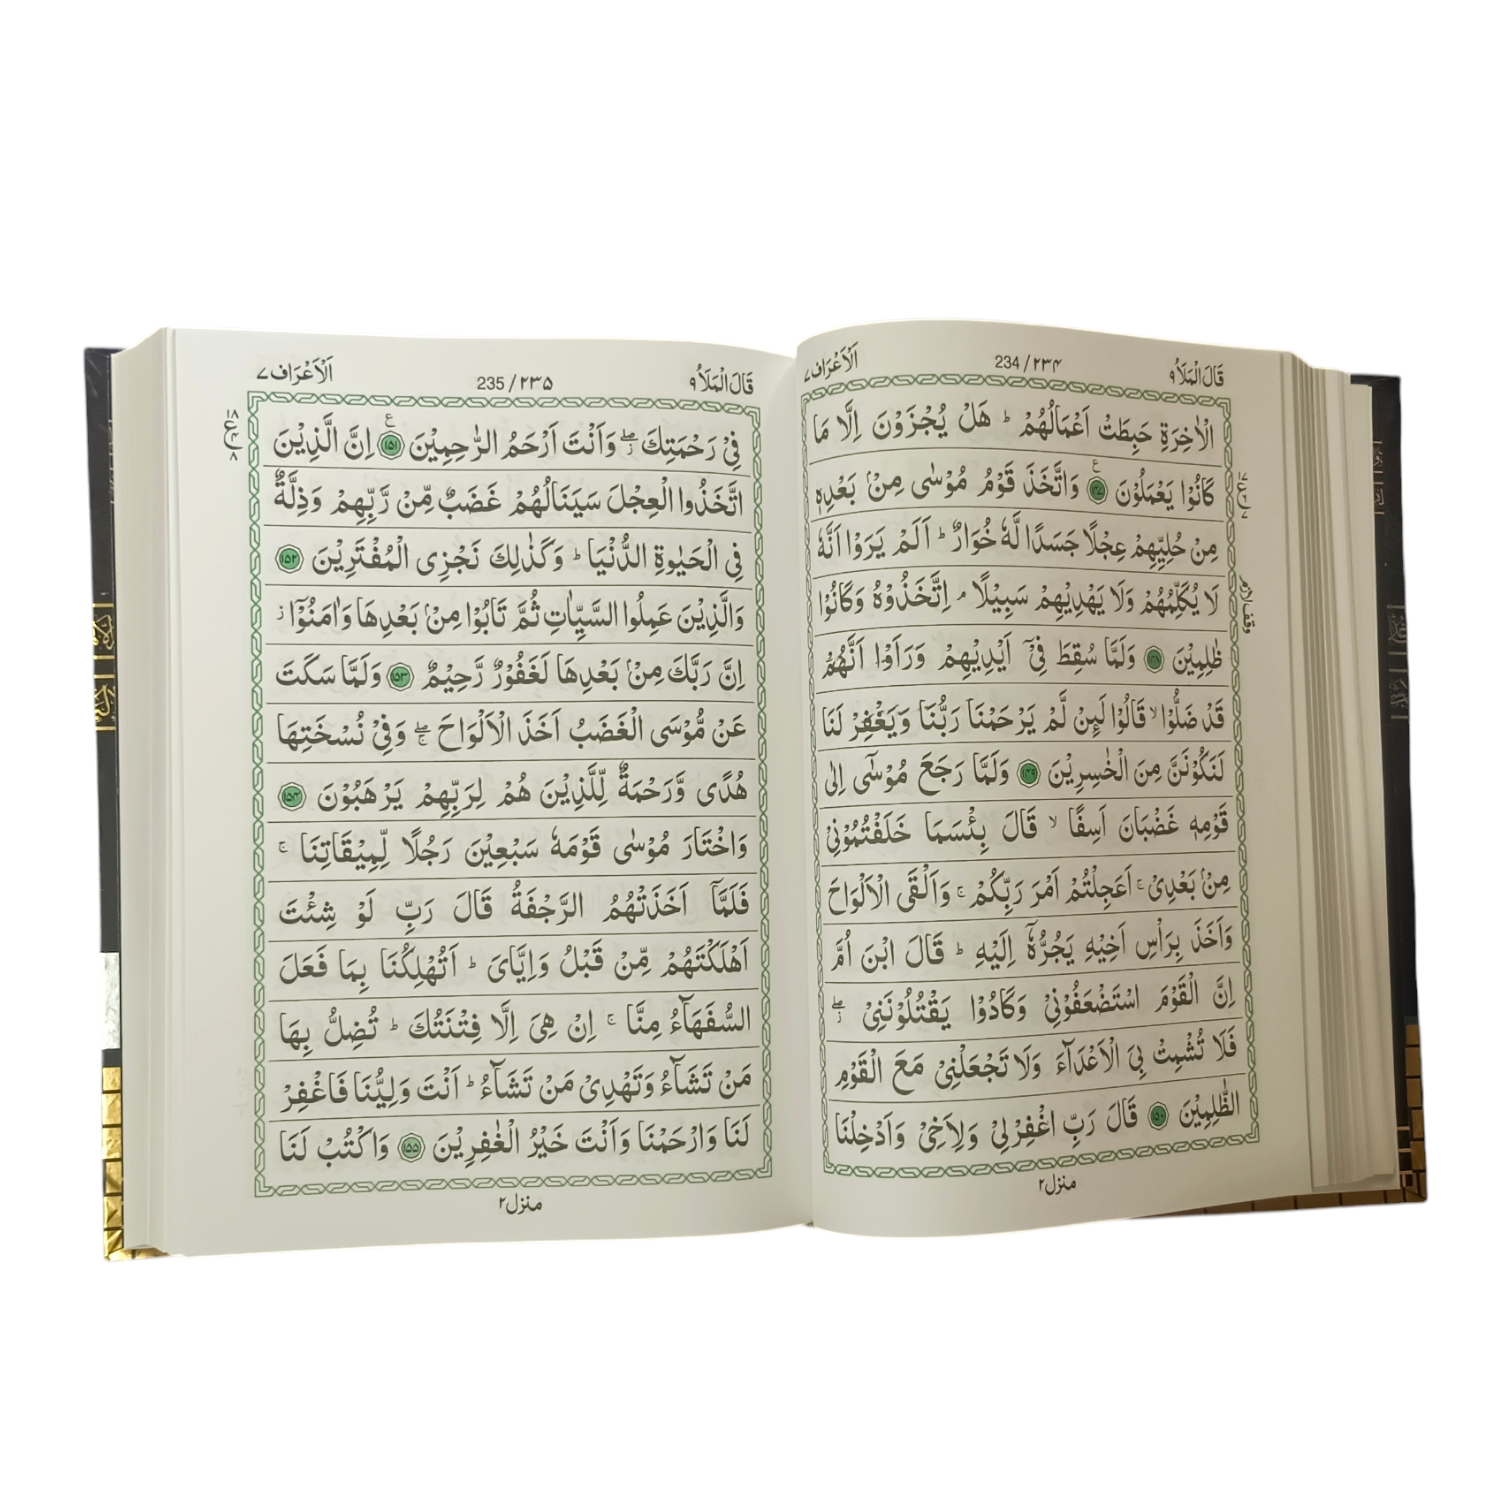 قَالَ الْمَلَاُ ٩
234 / ٢٣۴
اَلْاَعْرَاف ٧
الْاٰخِرَةِ حَبِطَتْ اَعْمَالُهُمْ ؕ هَلْ يُجْزَوْنَ اِلَّا مَا
كَانُوْا يَعْمَلُوْنَ ﴿١٤٧﴾ وَاتَّخَذَ قَوْمُ مُوْسٰى مِنْۢ بَعْدِهٖ
مِنْ حُلِيِّهِمْ عِجْلًا جَسَدًا لَّهٗ خُوَارٌ ؕ اَلَمْ يَرَوْا اَنَّهٗ
لَا يُكَلِّمُهُمْ وَلَا يَهْدِيْهِمْ سَبِيْلًا ۘ اِتَّخَذُوْهُ وَكَانُوْا
ظٰلِمِيْنَ ﴿١٤٨﴾ وَلَمَّا سُقِطَ فِيْۤ اَيْدِيْهِمْ وَرَاَوْا اَنَّهُمْ
قَدْ ضَلُّوْا ۙ قَالُوْا لَىِٕنْ لَّمْ يَرْحَمْنَا رَبُّنَا وَيَغْفِرْ لَنَا
لَنَكُوْنَنَّ مِنَ الْخٰسِرِيْنَ ﴿١٤٩﴾ وَلَمَّا رَجَعَ مُوْسٰۤى اِلٰى
قَوْمِهٖ غَضْبَانَ اَسِفًا ۙ قَالَ بِئْسَمَا خَلَفْتُمُوْنِيْ
مِنْۢ بَعْدِيْ ۚ اَعَجِلْتُمْ اَمْرَ رَبِّكُمْ ۚ وَاَلْقَى الْاَلْوَاحَ
وَاَخَذَ بِرَاْسِ اَخِيْهِ يَجُرُّهٗۤ اِلَيْهِ ؕ قَالَ ابْنَ اُمَّ
اِنَّ الْقَوْمَ اسْتَضْعَفُوْنِيْ وَكَادُوْا يَقْتُلُوْنَنِيْ ۖ ز
فَلَا تُشْمِتْ بِيَ الْاَعْدَآءَ وَلَا تَجْعَلْنِيْ مَعَ الْقَوْمِ
الظّٰلِمِيْنَ ﴿١٥٠﴾ قَالَ رَبِّ اغْفِرْ لِيْ وَلِاَخِيْ وَاَدْخِلْنَا
منزل ٢
قَالَ الْمَلَاُ ٩
235 / ٢٣٥
اَلْاَعْرَاف ٧
فِيْ رَحْمَتِكَ ۖ ز وَاَنْتَ اَرْحَمُ الرّٰحِمِيْنَ ﴿١٥١﴾ اِنَّ الَّذِيْنَ
اتَّخَذُوا الْعِجْلَ سَيَنَالُهُمْ غَضَبٌ مِّنْ رَّبِّهِمْ وَذِلَّةٌ
فِي الْحَيٰوةِ الدُّنْيَا ؕ وَكَذٰلِكَ نَجْزِي الْمُفْتَرِيْنَ ﴿١٥٢﴾
وَالَّذِيْنَ عَمِلُوا السَّيِّاٰتِ ثُمَّ تَابُوْا مِنْۢ بَعْدِهَا وَاٰمَنُوْۤا ز
اِنَّ رَبَّكَ مِنْۢ بَعْدِهَا لَغَفُوْرٌ رَّحِيْمٌ ﴿١٥٣﴾ وَلَمَّا سَكَتَ
عَنْ مُّوْسَى الْغَضَبُ اَخَذَ الْاَلْوَاحَ ۖ ج وَفِيْ نُسْخَتِهَا
هُدًى وَّرَحْمَةٌ لِّلَّذِيْنَ هُمْ لِرَبِّهِمْ يَرْهَبُوْنَ ﴿١٥٤﴾
وَاخْتَارَ مُوْسٰى قَوْمَهٗ سَبْعِيْنَ رَجُلًا لِّمِيْقَاتِنَا ۚ
فَلَمَّاۤ اَخَذَتْهُمُ الرَّجْفَةُ قَالَ رَبِّ لَوْ شِئْتَ
اَهْلَكْتَهُمْ مِّنْ قَبْلُ وَاِيَّايَ ؕ اَتُهْلِكُنَا بِمَا فَعَلَ
السُّفَهَآءُ مِنَّا ۚ اِنْ هِيَ اِلَّا فِتْنَتُكَ ؕ تُضِلُّ بِهَا
مَنْ تَشَآءُ وَتَهْدِيْ مَنْ تَشَآءُ ؕ اَنْتَ وَلِيُّنَا فَاغْفِرْ
لَنَا وَارْحَمْنَا وَاَنْتَ خَيْرُ الْغٰفِرِيْنَ ﴿١٥٥﴾ وَاكْتُبْ لَنَا
منزل ٢